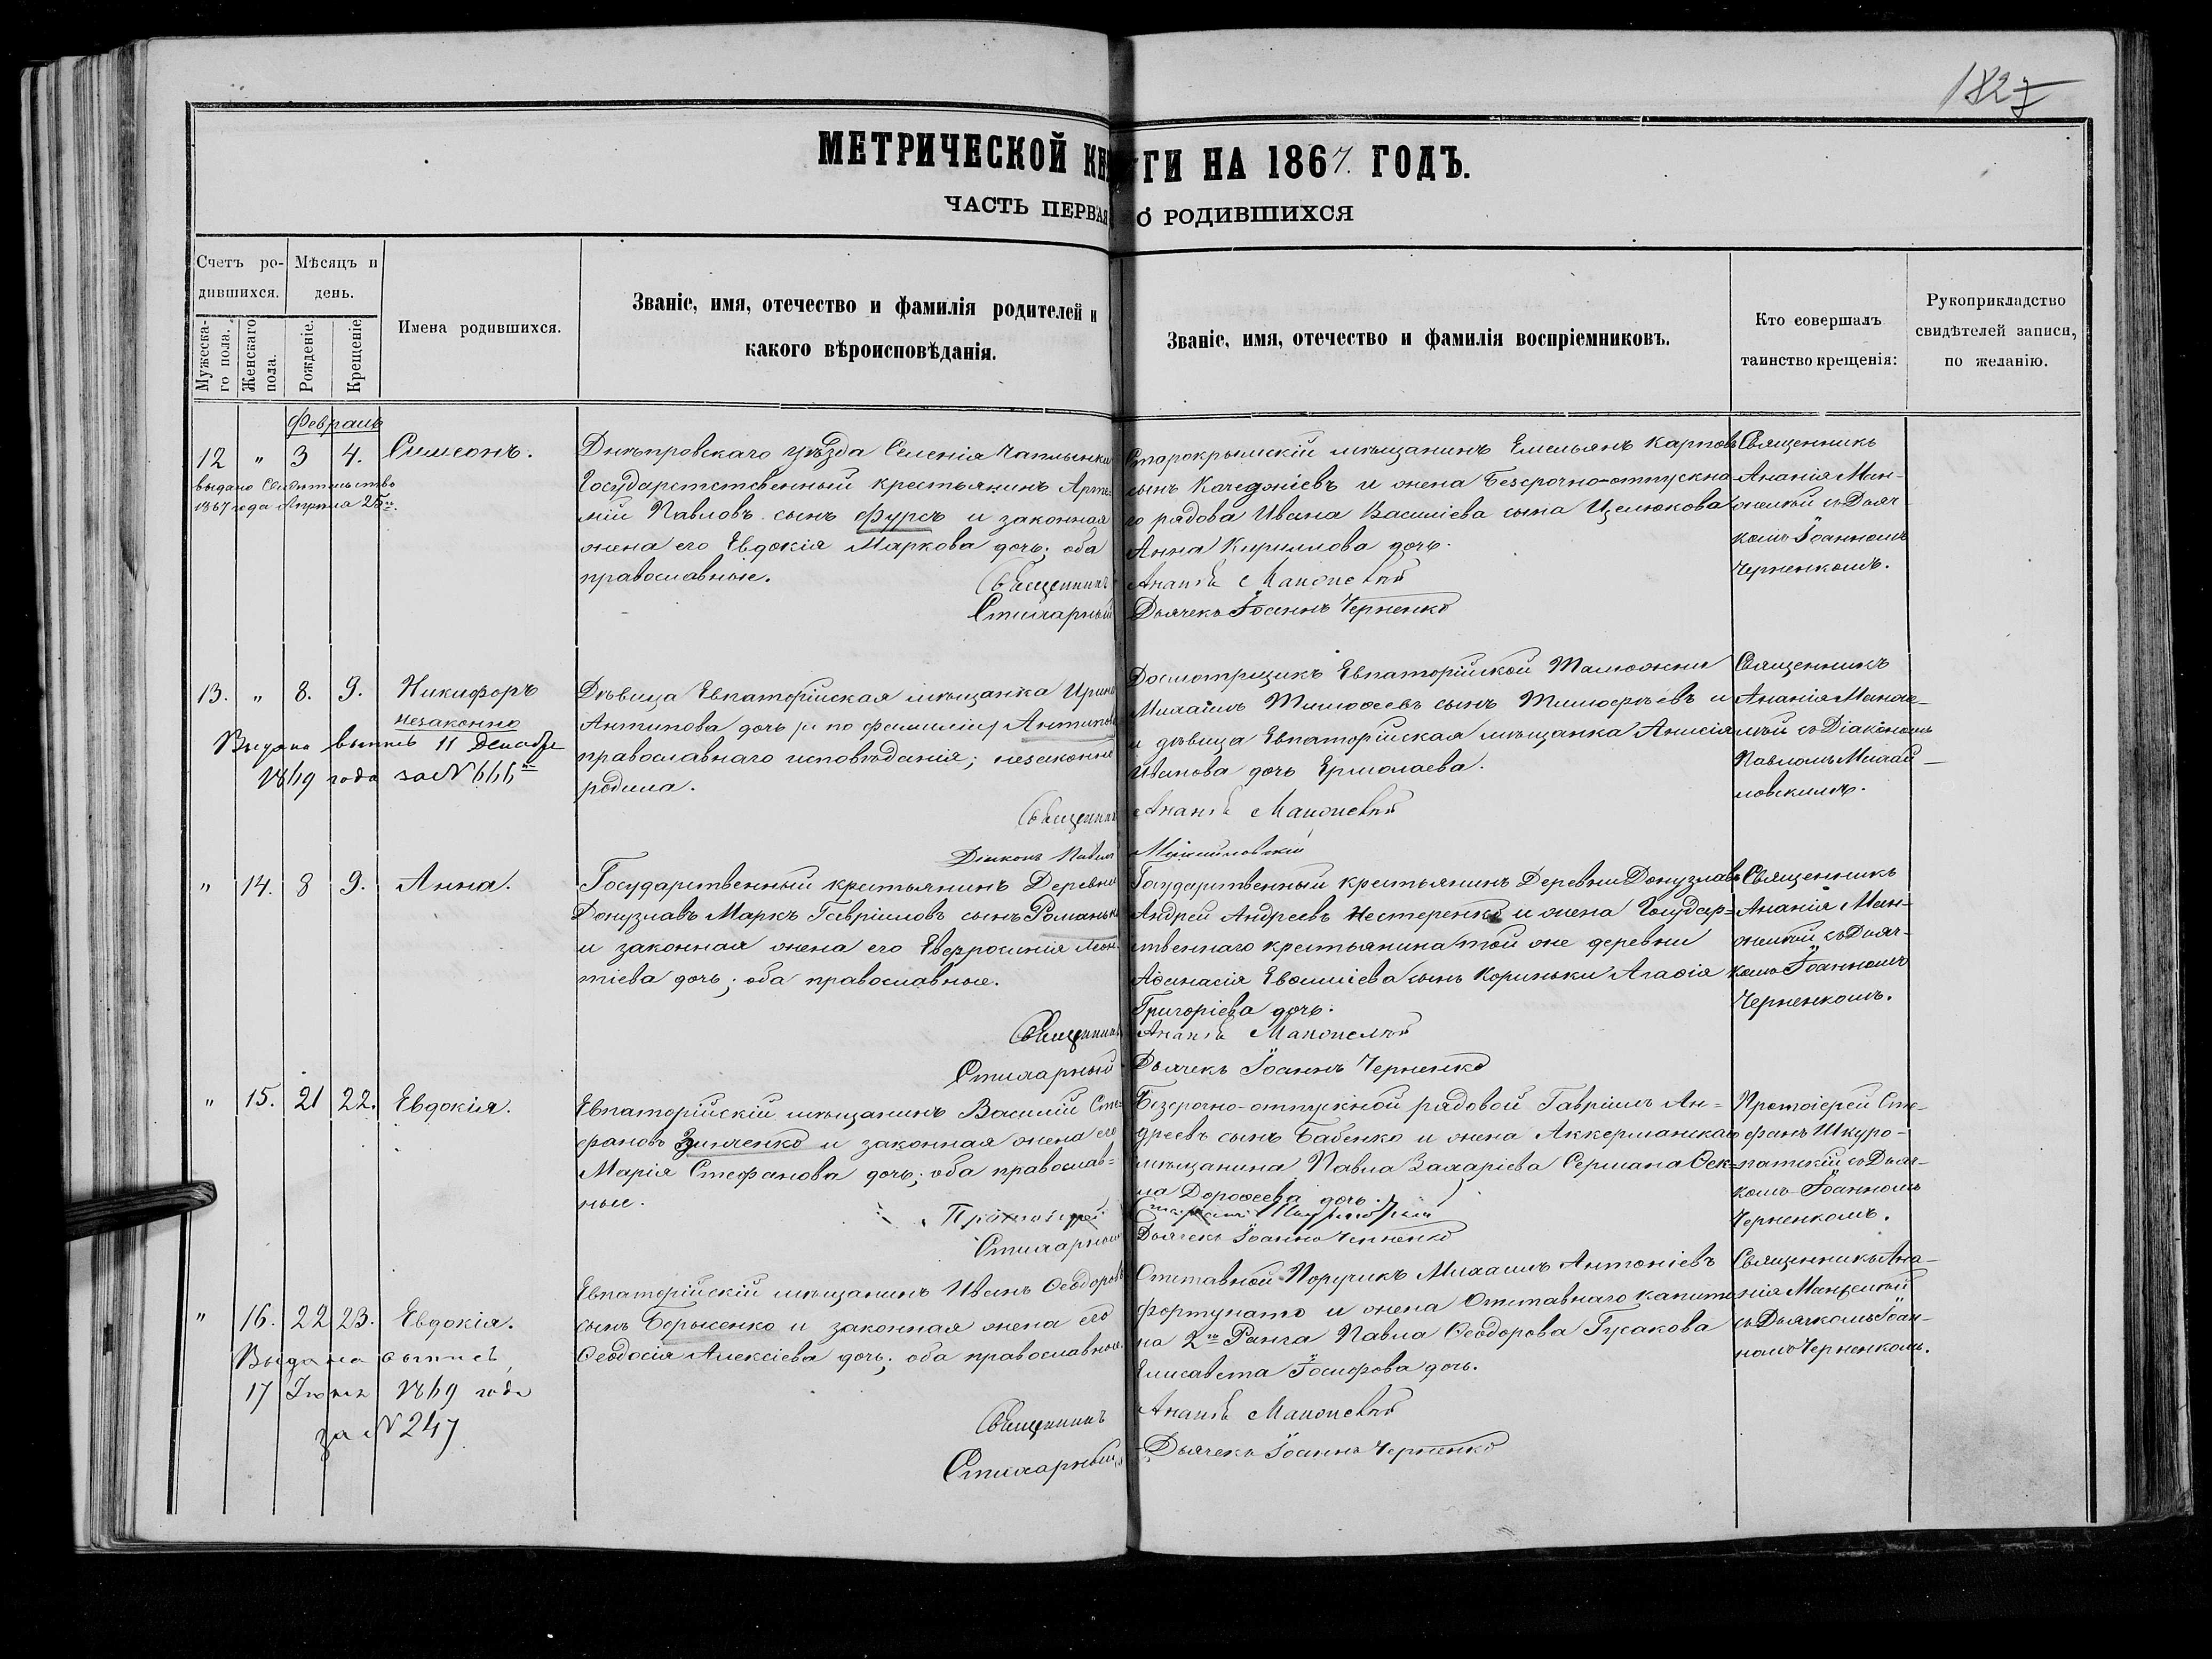 1827
МЕТРИЧЕСКОЙ КНИГИ НА 1867. ГОДЪ.
ЧАСТЬ ПЕРВАЯ О РОДИВШИХСЯ
Счетъ ро-
дившихся.
Мѣсяцъ и
день.
Мужеска-
го пола.
Женскаго
пола.
Рожденіе.
Крещеніе
Имена родившихся.
Званіе, имя, отечество и фамилія родителей и
какого вѣроисповѣданія.
Званіе, имя, отечество и фамилія воспріемниковъ.
Кто совершалъ
таинство крещенія:
Рукоприкладство
свидѣтелей записи,
по желанію.
Февраль
12 " 3 4. Симеонъ.
выдано Свидѣтельство
1867 года Апреля 25го.
Днѣпровскаго уѣзда Селенія Чаплынки
Государственный крестьянинъ Арте-
мій Павловъ сынъ Фурсъ и законная
жена его Евдокія Маркова дочь; оба
православные.
Старокрымскій мѣщанинъ Емельянъ Карповъ
сынъ Качеджіевъ и жена Безсрочно-отпускна
го рядова Ивана Василіева сына Целюкова
Анна Кирилова дочь.
Священникъ Ананія Манжелей
Стихарный Дьячекъ Іоаннъ Черненко
Священникъ
Ананія Ман-
желей съ Дьяч
комъ Іоанномъ
Черненкомъ.
13. " 8. 9. Никифоръ
незаконно
Выдана выпись 11 Декабря
1869 года за № 666м
Дѣвица Евпаторійская мѣщанка Ирина
Антипова дочь /а по фамиліи/ Антипова
православнаго исповѣданія; незаконно
родила.
Досмотрщикъ Евпаторійской Таможни
Михаилъ Тимоѳеевъ сынъ Тимофѣевъ и
и дѣвица Евпаторійская мѣщанка Анисія
Иванова дочь Ермолаева.
Священникъ Ананія Манжелей
Діаконъ Павелъ Михайловскій
Священникъ
Ананія Манже-
лей съ Діакономъ
Павломъ Михай-
ловскимъ.
" 14. 8 9. Анна.
Государственный крестьянинъ Деревни
Донузлавъ Маркъ Гавріиловъ сынъ Романько
и законная жена его Евфросинія Леон-
тіева дочь; оба православные.
Государственный крестьянинъ Деревни Донузлавъ
Андрей Андреевъ Нестеренко и жена Государ-
ственнаго крестьянина той же деревни
Аѳанасія Евѳиміева сынъ Кориньки Агаѳія
Григоріева дочь.
Священникъ Ананія Манжелей
Стихарный Дьячекъ Іоаннъ Черненко
Священникъ
Ананія Ман-
желей съ Дьяч-
комъ Іоанномъ
Черненкомъ.
" 15. 21 22. Евдокія.
Евпаторійскій мѣщанинъ Василій Сте-
фановъ Зинченко и законная жена его
Марія Стефанова дочь; оба православ-
ные.
Безсрочно-отпускной рядовой Гавріилъ Ан-
дреевъ сынъ Бабенко и жена Аккерманскаго
мѣщанина Павла Захаріева Сермана Ѳек-
ла Дороѳеева дочь.
Протоіерей
Стихарный Дьячекъ Іоаннъ Черненко
Протоіерей Сте-
фанъ Шкуро-
патскій съ Дьяч-
комъ Іоанномъ
Черненкомъ.
" 16. 22 23. Евдокія.
Выдана выпись
17 Іюня 1869 года
за № 247
Евпаторійскій мѣщанинъ Иванъ Ѳеодоровъ
сынъ Борысенко и законная жена его
Ѳеодосія Алексіева дочь; оба православные.
Отставной Поручикъ Михаилъ Антоніевъ
Фортунато и жена Отставнаго капита
на 2го Ранга Павла Ѳеодорова Гусакова
Елисавета Іосифова дочь.
Священникъ Ананія Манжелей
Стихарный Дьячекъ Іоаннъ Черненко
Священникъ Ана-
нія Манжелей
съ Дьячкомъ Іоан-
номъ Черненкомъ.